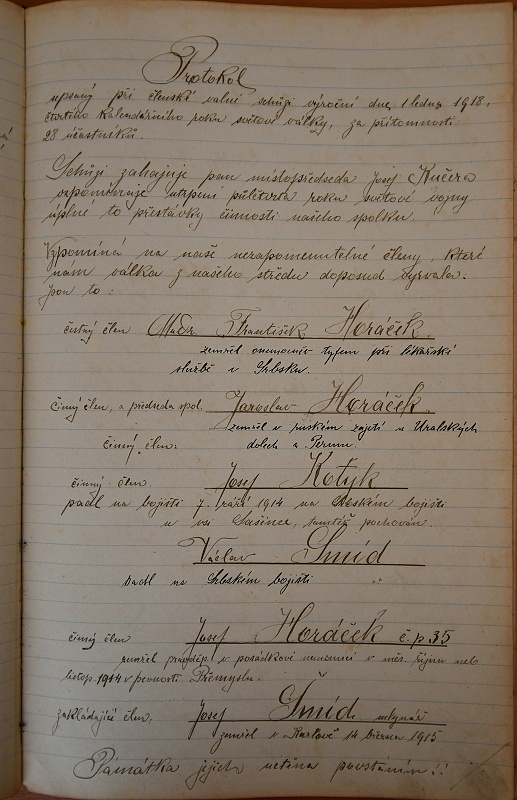 Protokol
sepsaný při členské valné schůzi výroční dne 1 ledna 1918,
čtvrtého kalendářního roku světové války, za přítomnosti
28 účastníků.
Schůzi zahajuje pan místopředseda Josef Kučera
vzpomínaje utrpení půlčtvrta roku světové vojny
úplné to přestávky činnosti našeho spolku.
Vzpomíná na naše nezapomenutelné členy, které
nám válka z našeho středu doposud vyrvala:
jsou to:
čestný člen Mudr František Horáček.
zemřel onemocněv tyfem při lékařské
službě v Srbsku.
činný člen, a předseda spol. Jaroslav Horáček.
zemřel v ruském zajetí v Uralských
činný člen: dolech u Permu.
činný člen. Josef Kotyk
padl na bojišti 7. září 1914 na Srbském bojišti
u vsi Šašince, tamtéž pochován.
Václav Šmíd
padl na Srbském bojišti "
činný člen Josef Horáček č.p 35
zemřel pravděp. v posádkové nemocnici v měs. říjnu neb
listop. 1914 v pevnosti Přemyslu.
zakládající člen, Josef Šmíd. mlynář
zemřel v Karlově 14 března 1915
Památka jejich uctěna povstáním!!